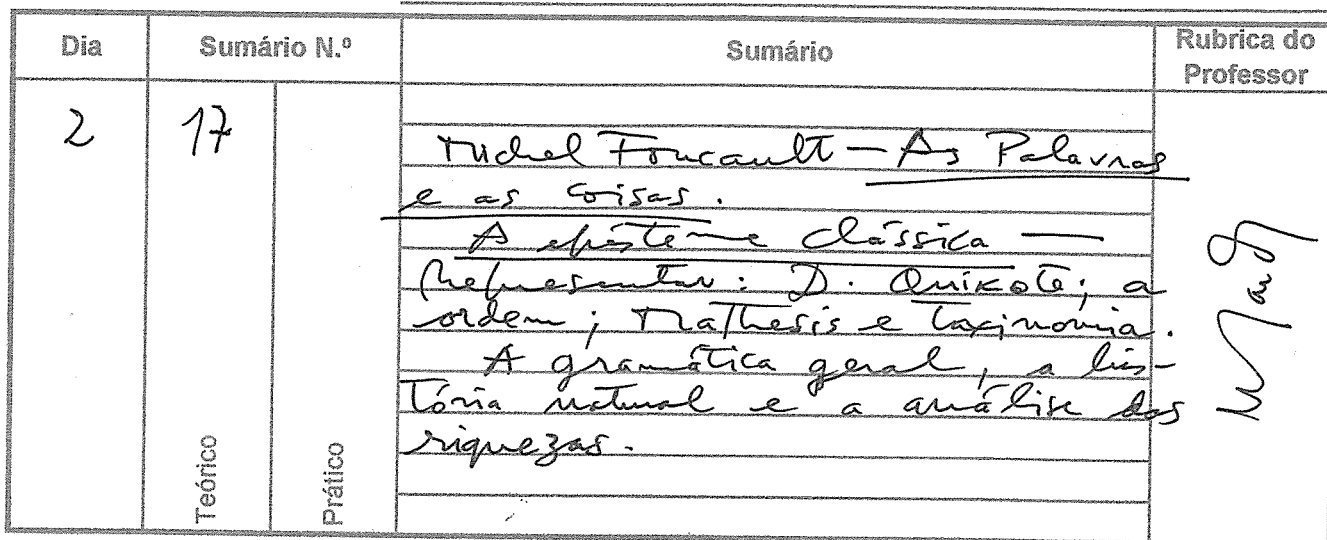 Dia Sumário N.º Sumário Rubrica do Professor
2 17
Michel Foucault — As Palavras
e as coisas.
A episteme clássica —
Representar: D. Quixote; a
ordem; Mathesis e Taxinomia.
A gramática geral, a his-
tória natural e a análise das
riquezas.
Teórico Prático